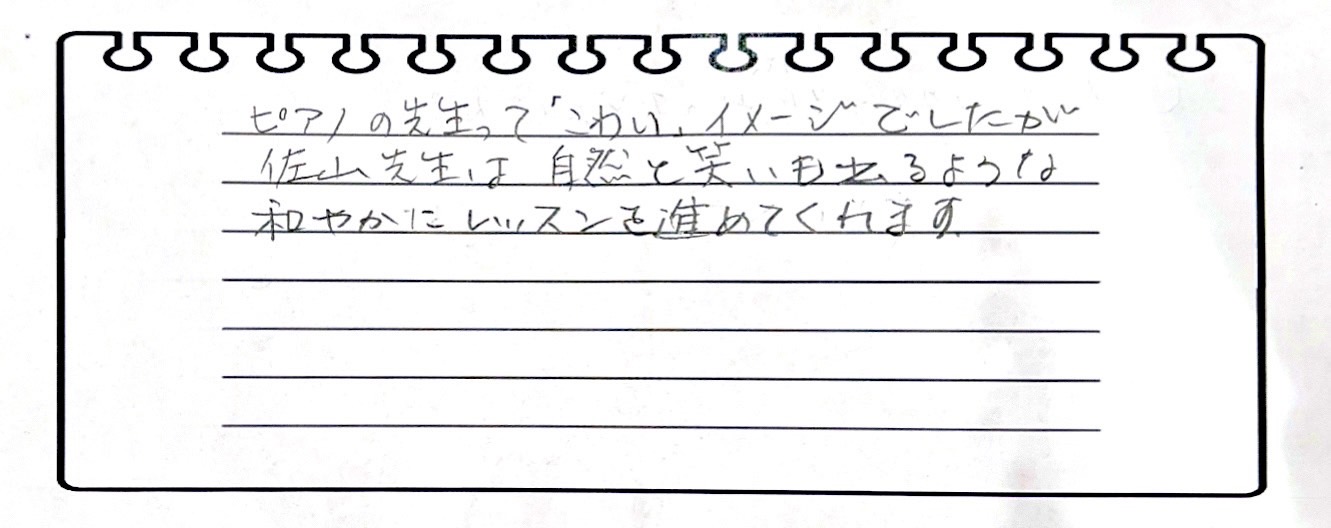 ピアノの先生って「こわい」イメージでしたが
佐山先生は自然と笑いも出るような
和やかにレッスンを進めてくれます。